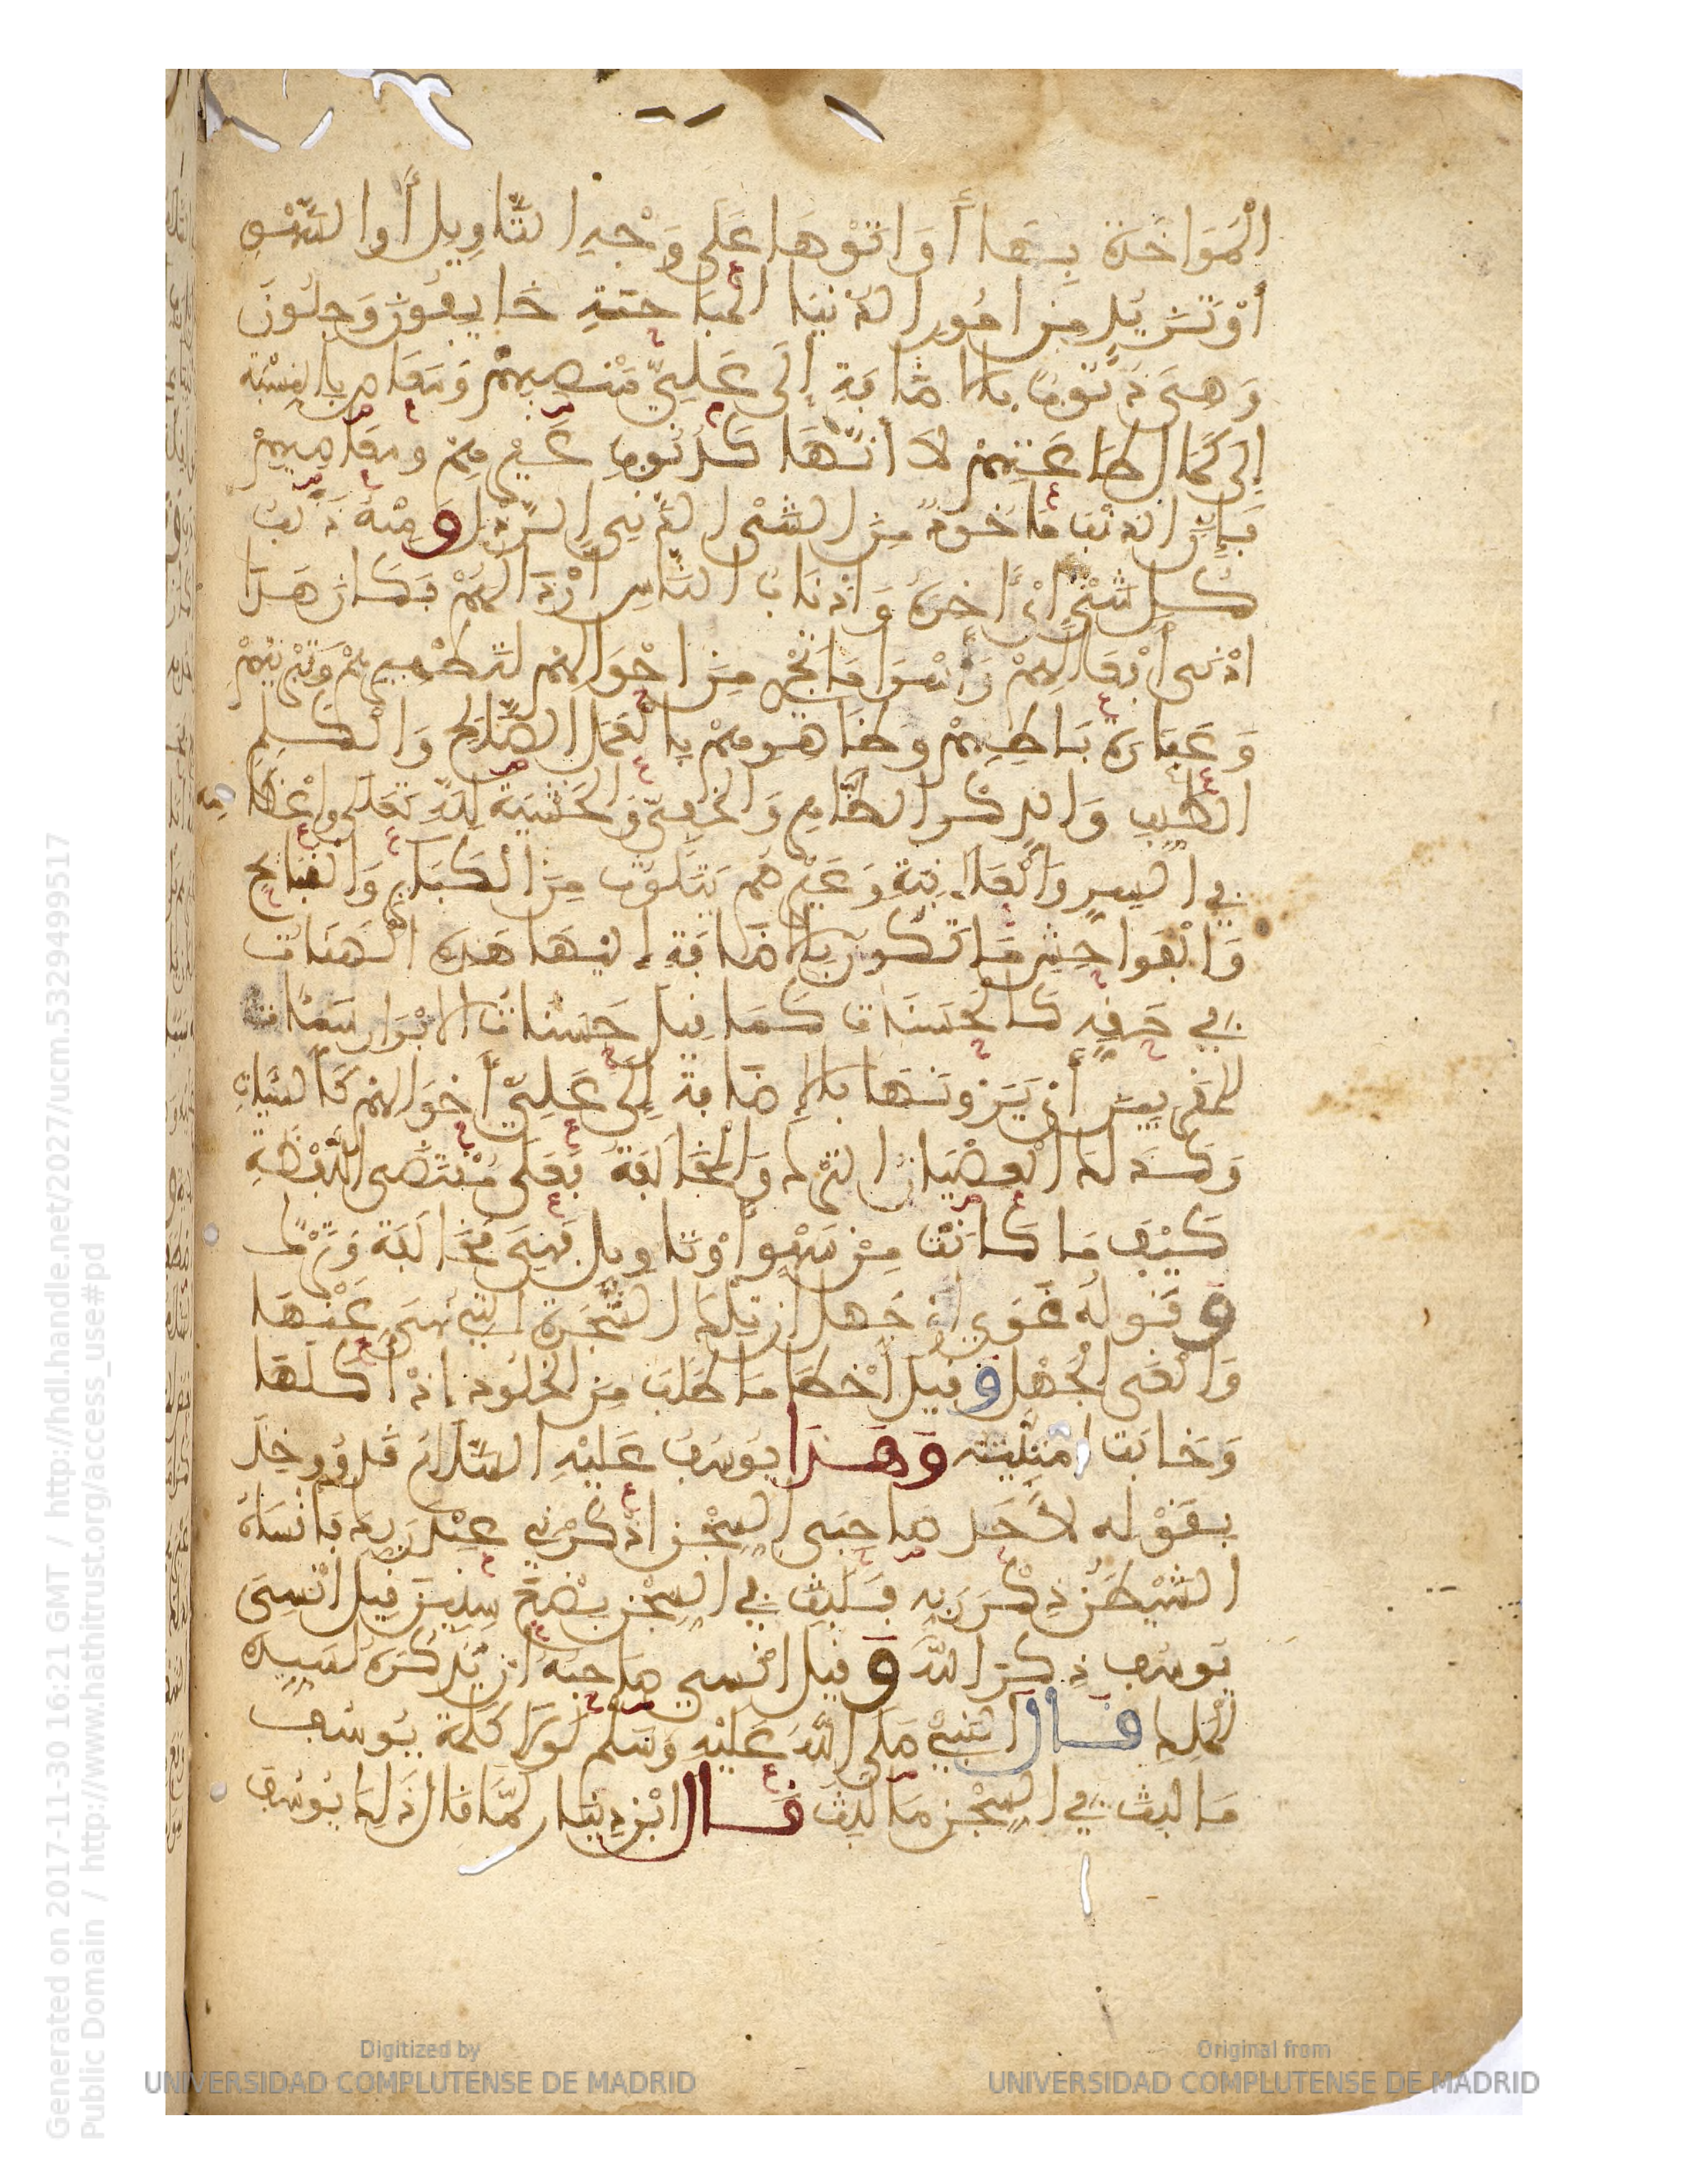 الْمُوَاخَذَة بِهَا أَوَ اتَوْهَا عَلَى وَجْهِ التَّاوِيلِ أَوِ السَّهْوِ
أَوْ تَزَيُّدٍ مِنْ امُورِ الدُّنْيَا الْمُبَاحَةِ خَايِفُونَ وَجِلُونَ
وَهِىَ ذُنُوبٌ بِالاضَافَةِ إِلَى عَلِيِّ مَنْصِبِهِمْ وَمَعَاصٍ بِالنِّسْبَةِ
إِلَى كَمَالِ طَاعَتِهِمْ لَا أَنَّهَا كَذُنُوبِ غَيْرِهِمْ وَمَعَاصِيهِمْ
فَإِنَّ الذَّنْبَ مَاخُوذٌ مِنَ الشَّىْءِ الدَّنِيِّ الرَّذْلِ وَمِنْهُ ذَنَبُ
كُلِّ شَىْءٍ أَىْ ءَاخِرُهُ وَاذْنَابُ النَّاسِ أَرْذَالُهُمْ فَكَانَّ هَذَا
ادْنَى أَفْعَالِهِمْ وَأَسْوَأ مَا يَجْرِي مِنَ احْوَالِهِمْ لِتَطْهِيرِهِمْ وَتَنْزِيهِهِمْ
وَعِمَارَةِ بَاطِنِهِمْ وَظَاهِرِهِمْ بِالْعَمَلِ الصَّالِحِ وَالْكَلِمِ
الطَّيِّبِ وَالذِّكْرِ الظَّاهِرِ وَالْخَفِيِّ وَالْخَشْيَةِ لِلَّهِ تَعَلَى وَإِعْظَامِهِ
فِي السِّرِّ وَالْعَلَانِيَةِ وَغَيْرُهُمْ يَتَلَوَّثُ مِنَ الْكَبَايِرِ وَالْقَبَايِحِ
وَالْفَوَاحِشِ مَا تَكُونُ بِالاضَافَةِ إِلَيْهَا هَذِهِ الْهَنَاتُ
فِي حَقِّهِ كَالْحَسَنَاتِ كَمَا قِيلَ حَسَنَاتُ الابْرَارِ سَيِّئَاتُ
الْمُقَرَّبِينَ أَىْ يَرَوْنَهَا بِالإِضَافَةِ إِلَى عَلِيِّ أَحْوَالِهِمْ كَالسَّيِّئَاتِ
وَكَذَلِكَ الْعِصْيَانُ التَّرْكُ وَالْمُخَالَفَةُ فَعَلَى مُقْتَضَى اللَّفْظَةِ
كَيْفَ مَا كَانَتْ مِنْ سَهْوٍ أَوْ تَاوِيلٍ فَهِىَ مُخَالَفَةٌ وَتَرْكٌ
وَقَوْلُهُ غَوَى أَىْ جَهِلَ أَنَّ تِلْكَ الشَّجَرَةَ الَّتِي نُهِىَ عَنْهَا
وَالْغَىُّ الْجَهْلُ وَقِيلَ أَخْطَأَ مَا طَلَبَ مِنَ الْخُلُودِ إِذْ أَكَلَهَا
وَخَابَتْ امْنِيَّتُهُ وَهَذَا يُوسُفُ عَلَيْهِ السَّلَامُ قَدْ وُوخِذَ
بِقَوْلِهِ لأَحَدِ صَاحِبَىِ السِّجْنِ اذْكُرْنِي عِنْدَ رَبِّكَ فَأَنْسَاهُ
الشَّيْطَنُ ذِكْرَ رَبِّهِ فَلَبِثَ فِي السِّجْنِ بِضْعَ سِنِينَ قِيلَ انْسِىَ
يُوسُفُ ذِكْرَ اللَّهِ وَقِيلَ انْسِىَ صَاحِبُهُ أَنْ يَذْكُرَهُ لِسَيِّدِهِ
الْمَلِكِ قَالَ النَّبِيُّ صَلَّى اللَّهُ عَلَيْهِ وَسَلَّمَ لَوْلَا كَلِمَةُ يُوسُفَ
مَا لَبِثَ فِي السِّجْنِ مَا لَبِثَ قَالَ ابْنُ دِينَارٍ لَمَّا قَالَ ذَلِكَ يُوسُفُ
Generated on 2017-11-30 16:21 GMT / http://hdl.handle.net/2027/ucm.5329499517
Public Domain / http://www.hathitrust.org/access_use#pd
Digitized by
UNIVERSIDAD COMPLUTENSE DE MADRID
Original from
UNIVERSIDAD COMPLUTENSE DE MADRID